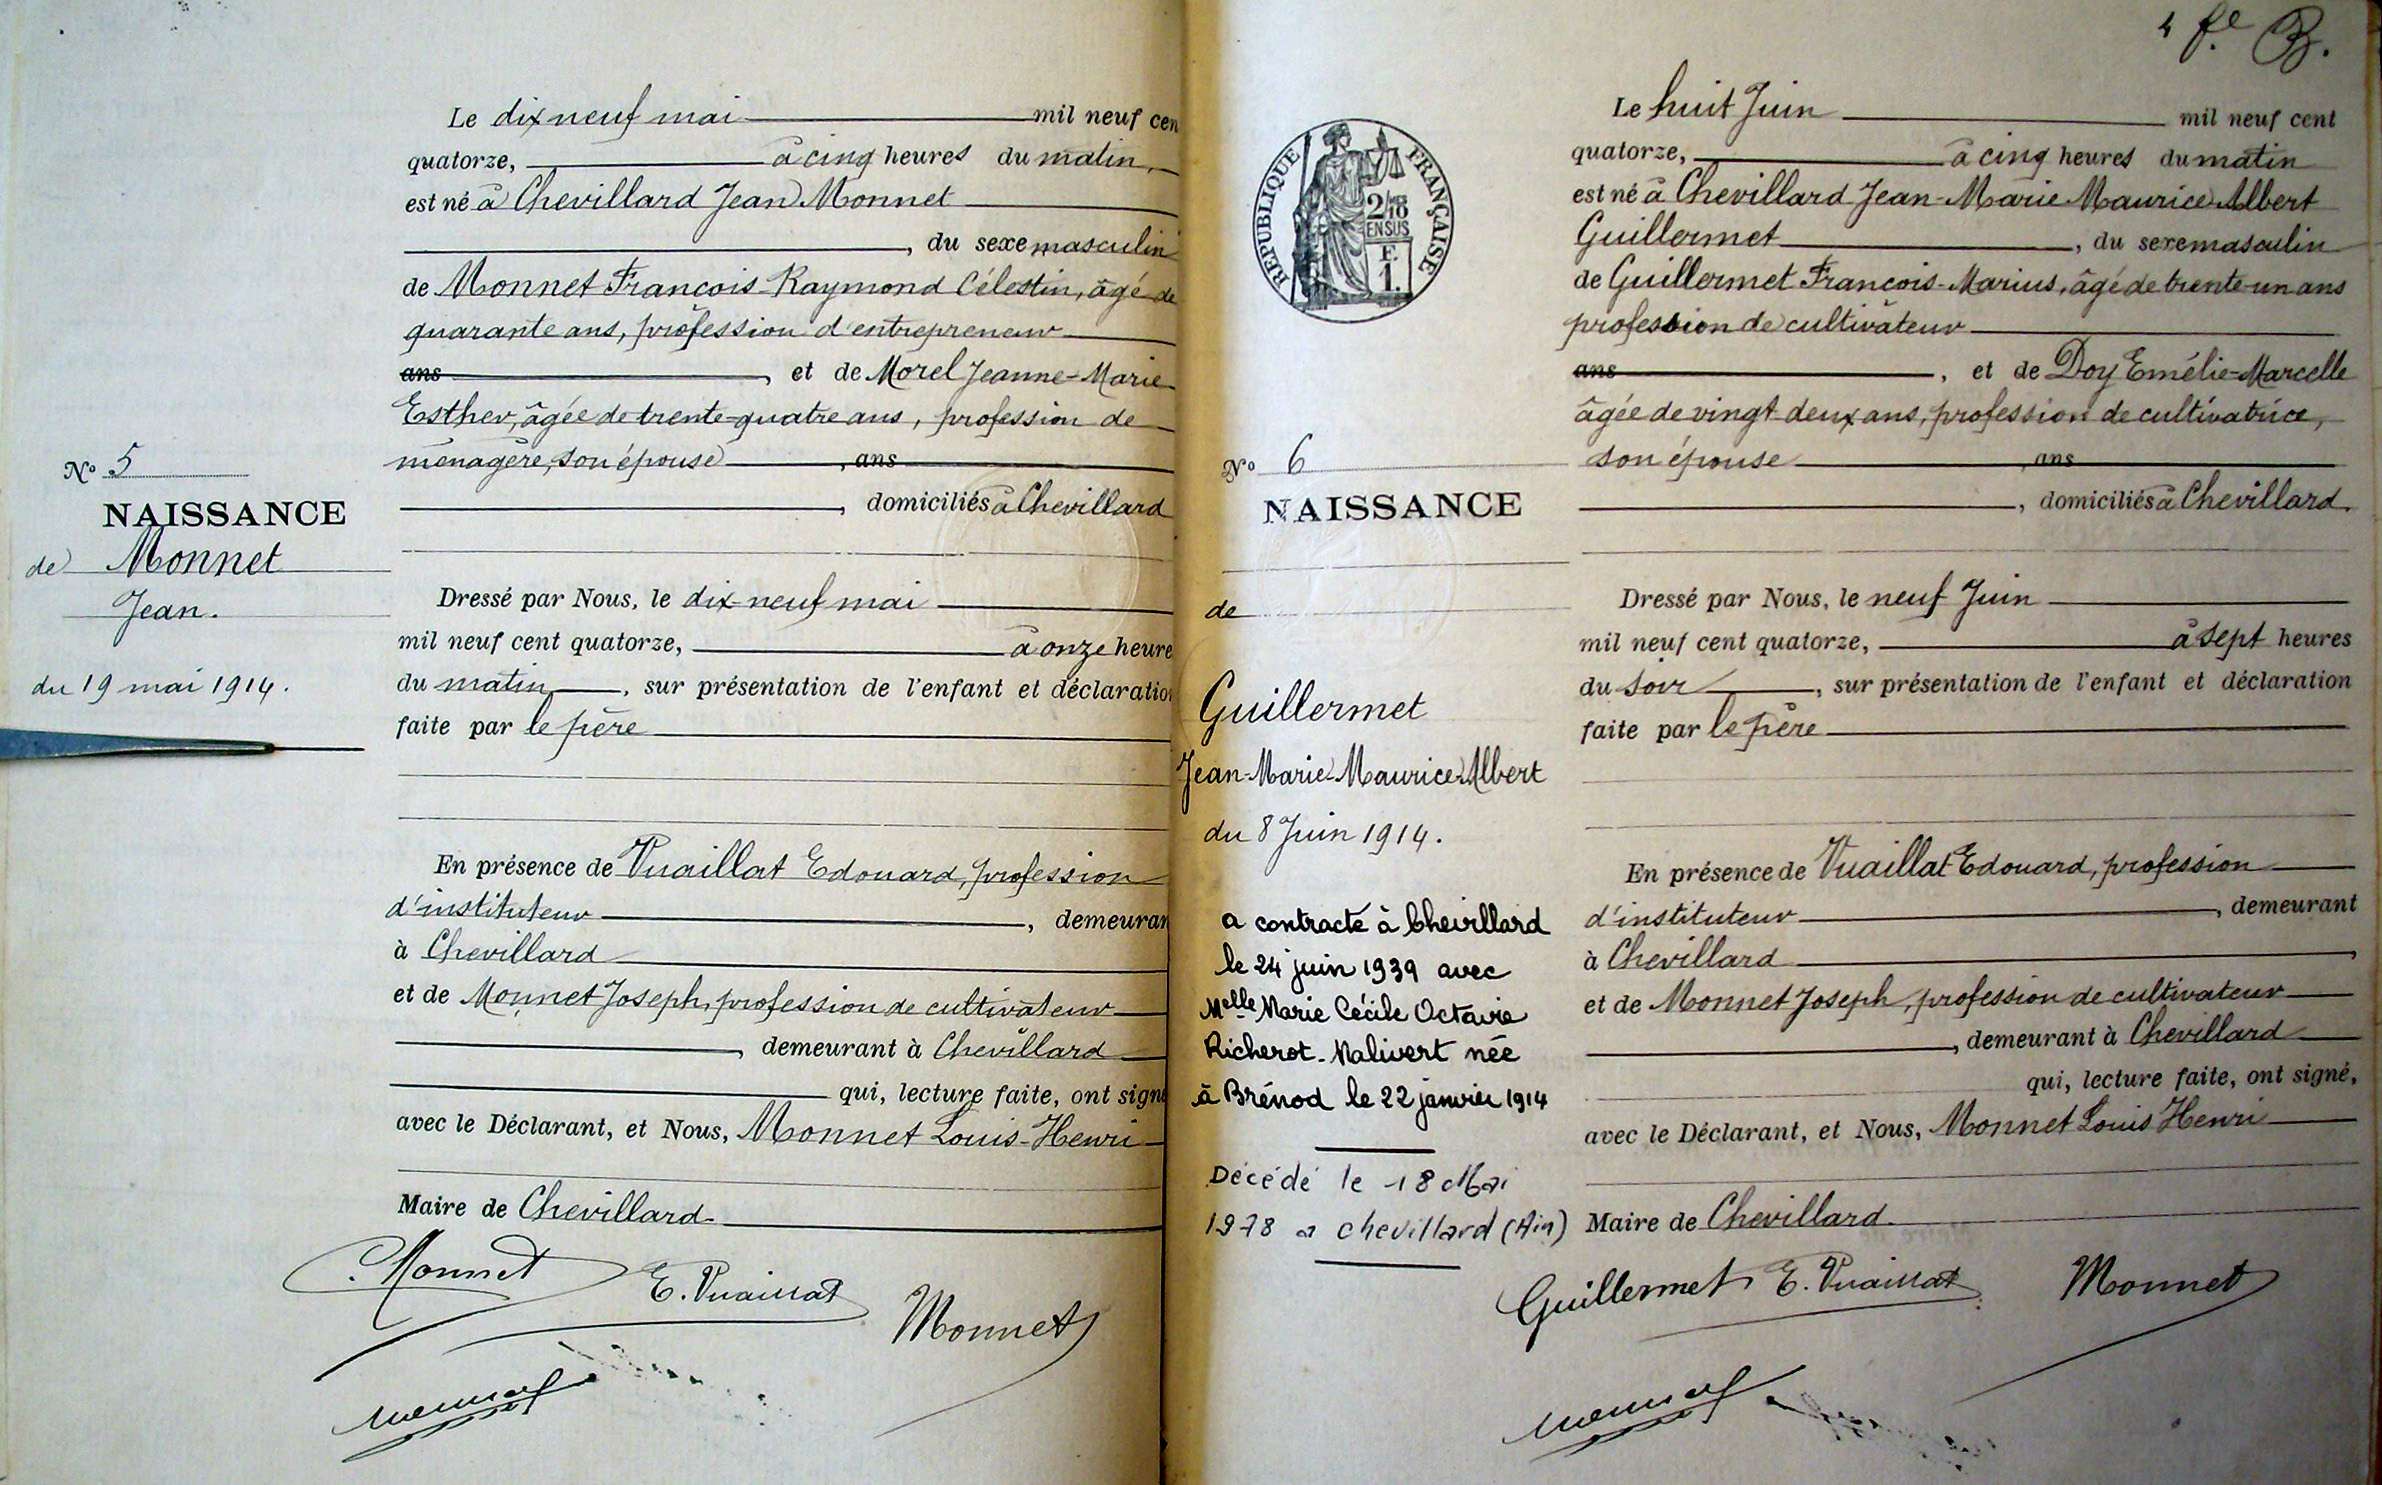 Le dix neuf mai mil neuf cen
quatorze, à cinq heures du matin,
est né à Chevillard Jean Monnet
, du sexe masculin
de Monnet François-Raymond Célestin, âgé de
quarante ans, profession d'entrepreneur
ans, et de Morel Jeanne-Marie
Esther, âgée de trente-quatre ans, profession de
ménagère, son épouse, ans
, domiciliés à Chevillard
Nº 5
NAISSANCE
de Monnet
Jean.
du 19 mai 1914.
Dressé par Nous, le dix-neuf mai
mil neuf cent quatorze, à onze heure
du matin, sur présentation de l'enfant et déclaration
faite par le père
En présence de Vuaillat Edouard, profession
d'instituteur, demeuran
à Chevillard
et de Monnet Joseph, profession de cultivateur
, demeurant à Chevillard
qui, lecture faite, ont signé
avec le Déclarant, et Nous, Monnet Louis-Henri
Maire de Chevillard.
Monnet
E. Vuaillat
Monnet
4 fe B.
RÉPUBLIQUE FRANÇAISE
2/10
EN SUS
F.
1.
Le huit Juin mil neuf cent
quatorze, à cinq heures du matin
est né à Chevillard Jean-Marie Maurice Albert
Guillermet, du sexe masculin
de Guillermet François-Marius, âgé de trente-un ans
profession de cultivateur
ans, et de Doy Emélie-Marcelle
âgée de vingt-deux ans, profession de cultivatrice,
son épouse, ans
, domiciliés à Chevillard.
Nº 6
NAISSANCE
de
Guillermet
Jean-Marie-Maurice Albert
du 8 Juin 1914.
a contracté à Chevillard
le 24 juin 1939 avec
Melle Marie Cécile Octavie
Richerot-Malivert née
à Brénod le 22 janvier 1914
Décédé le 18 Mai
1978 a chevillard (Ain)
Dressé par Nous, le neuf Juin
mil neuf cent quatorze, à sept heures
du soir, sur présentation de l'enfant et déclaration
faite par le père
En présence de Vuaillat Edouard, profession
d'instituteur, demeurant
à Chevillard
et de Monnet Joseph, profession de cultivateur
, demeurant à Chevillard
qui, lecture faite, ont signé,
avec le Déclarant, et Nous, Monnet Louis Henri
Maire de Chevillard.
Guillermet E. Vuaillat Monnet